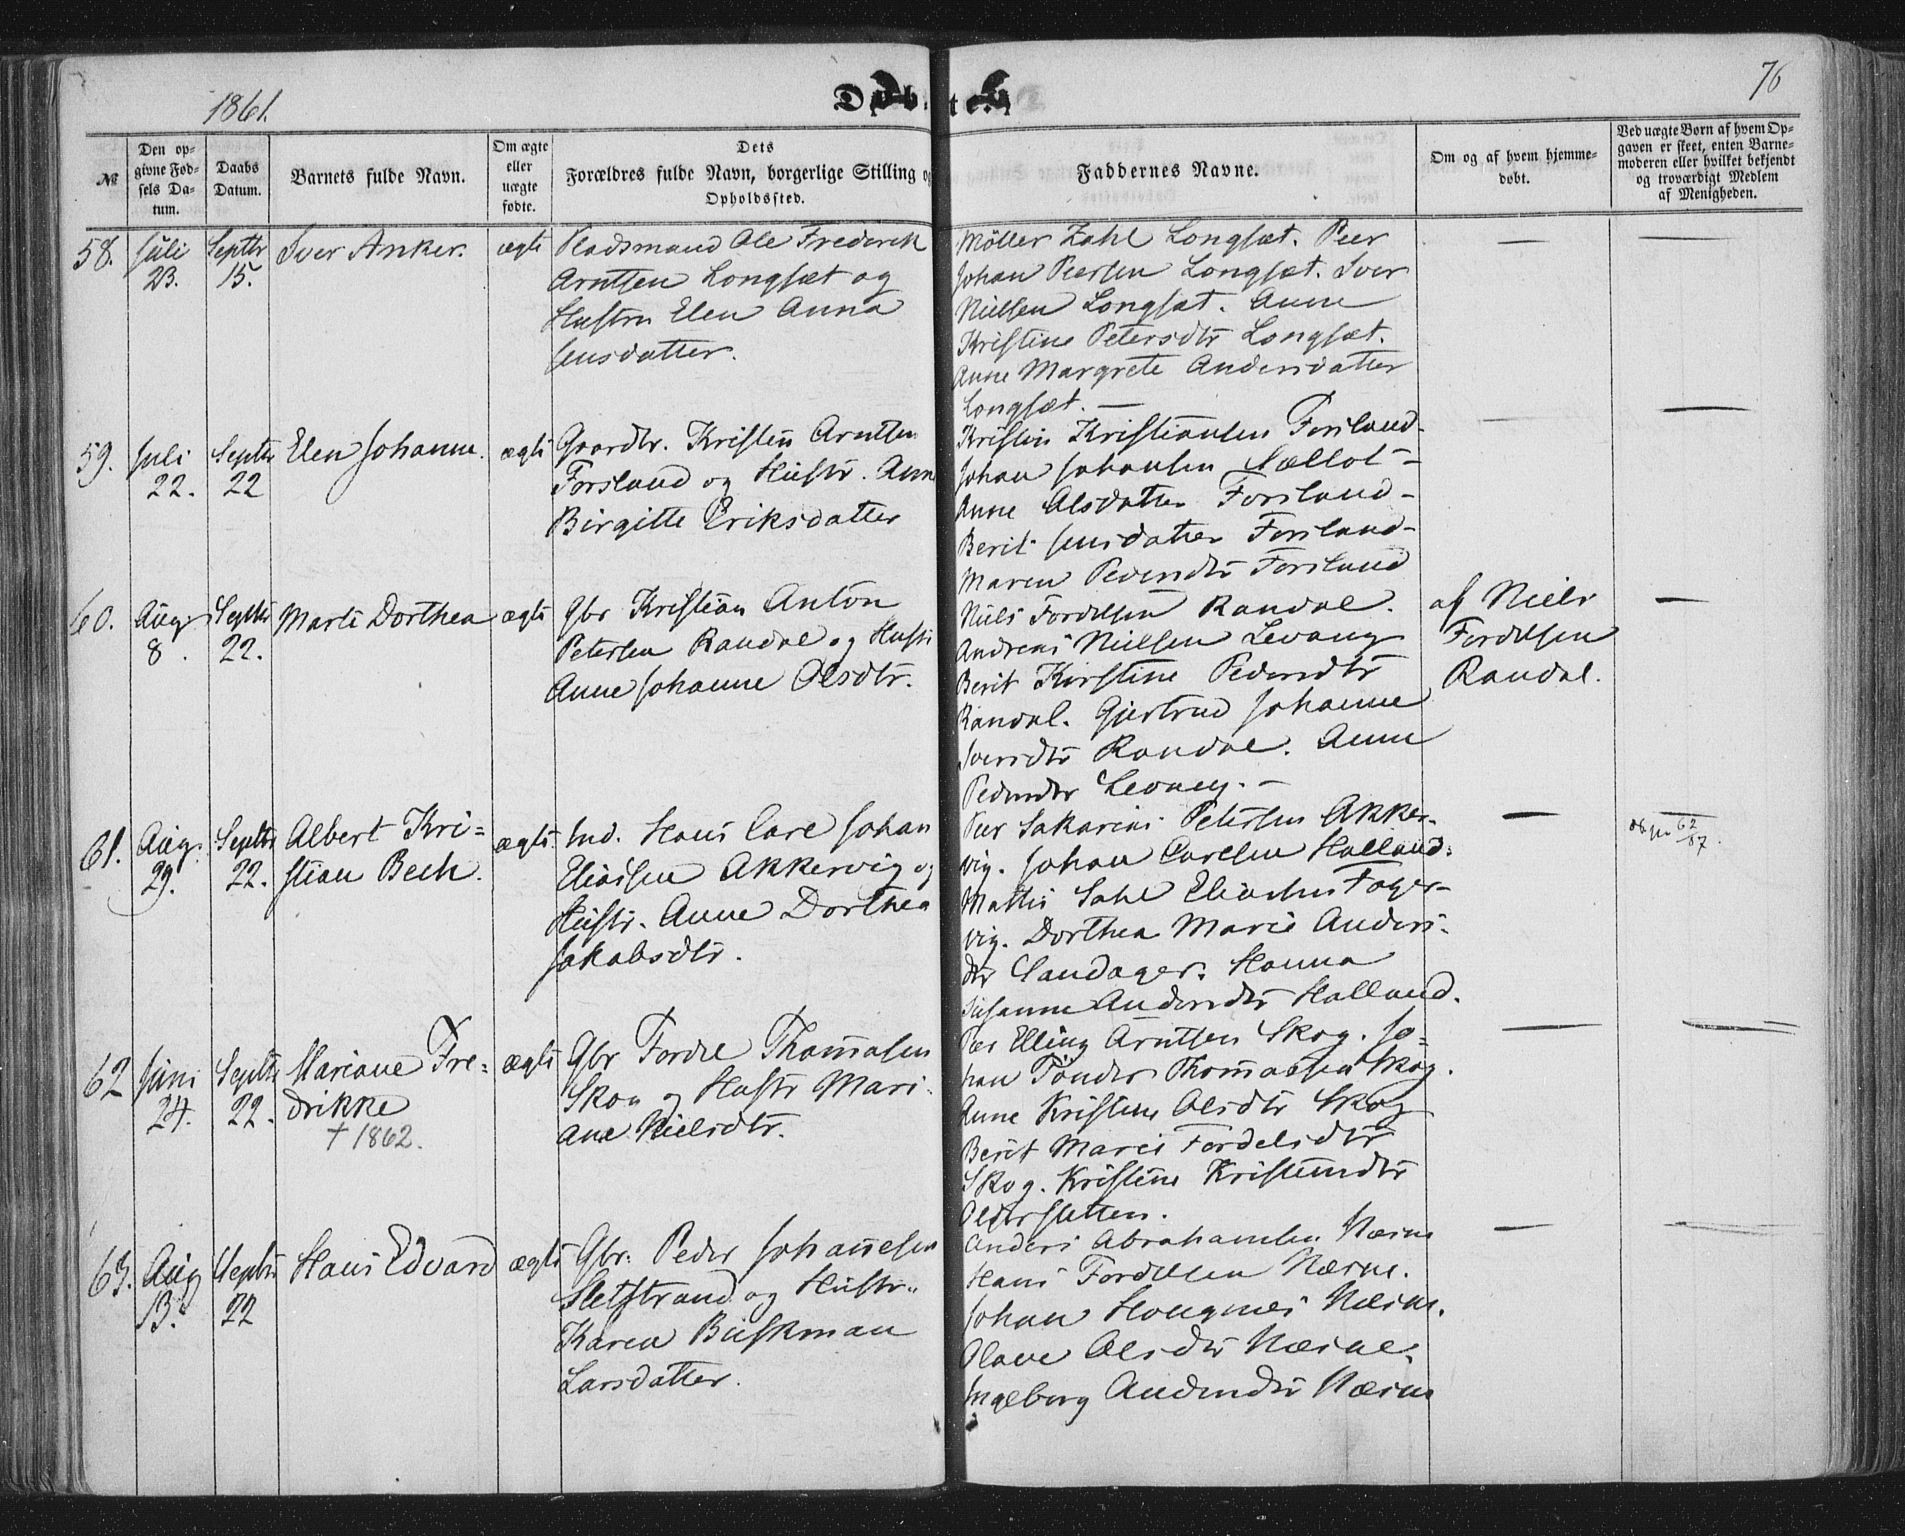 1861.
Døbte.
76
№
Den opgivne Fødsels Datum.
Daabs Datum.
Barnets fulde Navn.
Om ægte eller uægte fødte.
Dets
Forældres fulde Navn, borgerlige Stilling og
Opholdssted.
Faddernes Navne.
Om og af hvem hjemmedøbt.
Ved uægte Børn af hvem Opgaven er skeet, enten Barnemoderen eller hvilket bekjendt og troværdigt Medlem af Menigheden.
58. Juli 23. Septbr 15. Iver Anker. ægte
Pladsmand Ole Frederik
Arntsen Longsæt og
Hustru Elen Anna
Jensdatter.
Møller Zahl Longsæt. Peer
Johan Peersen Longsæt. Iver
Nielsen Longsæt. Anne
Kristine Petersdtr Longsæt.
Anne Margrete Andersdatter
Longsæt. —
59. Juli 22. Septbr 22 Elen Johanne. ægte
Gaardbr. Kristen Arntsen
Forsland og Hustr. Anne
Birgitte Eriksdatter
Kristen Kristiansen Forsland-
Johan Johansen Sællot-
Anne Olsdatter Forsland-
Berit Jensdatter Forsland-
Maren Pedersdtr Forsland
60. Aug 8. Septbr 22. Marte Dorthea ægte
Gbr Kristian Anton
Petersen Randal og Hustr
Anne Johanne Olsdtr.
Niels Fordelsen Randal.
Andreas Nielsen Levang
Berit Kirstine Pedersdtr
Randal. Gjertrud Johanne
Iversdtr Randal. Anne
Pedersdtr Levang. —
af Niels
Fordelsen
Randal.
61. Aug. 29. Septbr 22. Albert Kri=
stian Bech. ægte
Ind. Hans Carl Johan
Eliassen Akkervig og
Hustr. Anne Dorthea
Jakobsdtr.
Peer Sakarias Petersen Akker-
vig. Johan Carlsen Halland.
Mathis Sahl Eliassen Fager-
vig. Dorthea Marie Anders-
dtr Sandager. Hanna
Susanne Andersdtr Halland.
62/87.
62 Juni 24. Septbr 22. Mariane Fre=
drikke
† 1862.
ægte
Gbr Fordel Thomasen
Skog og Hustr Mari-
ane Nielsdtr.
Peer Elling Arntsen Skog. Jo=
han Tønder Thomassen Skog.
Anne Kristine Olsdtr Skog
Berit Marie Fordelsdtr
Skog. Kristine Kristensdtr
Oldersletten.
63. Aug 13. Septbr 22 Hans Edvard ægte
Gbr. Peder Johannesen
Sletstrand og Hustr.
Karen Buskman
Larsdatter.
Anders Abrahamsen Næsne
Hans Fordelsen Næsne.
Johan Hongnæs Næsne.
Olave Olsdtr Næsne.
Ingeborg Andersdtr Næsne